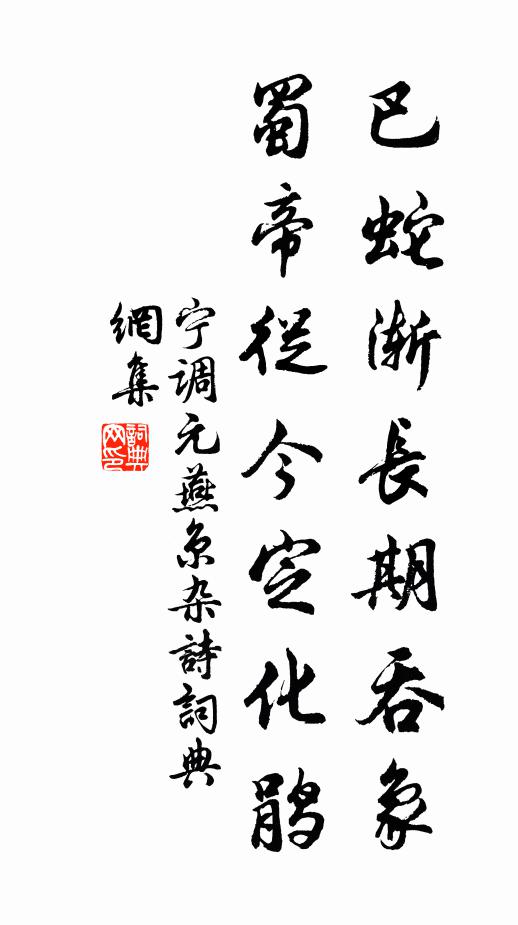 巴蛇渐長期吞象
蜀帝從今定化鹃
宁调元燕京杂詩詞典
網集
詞典
网印